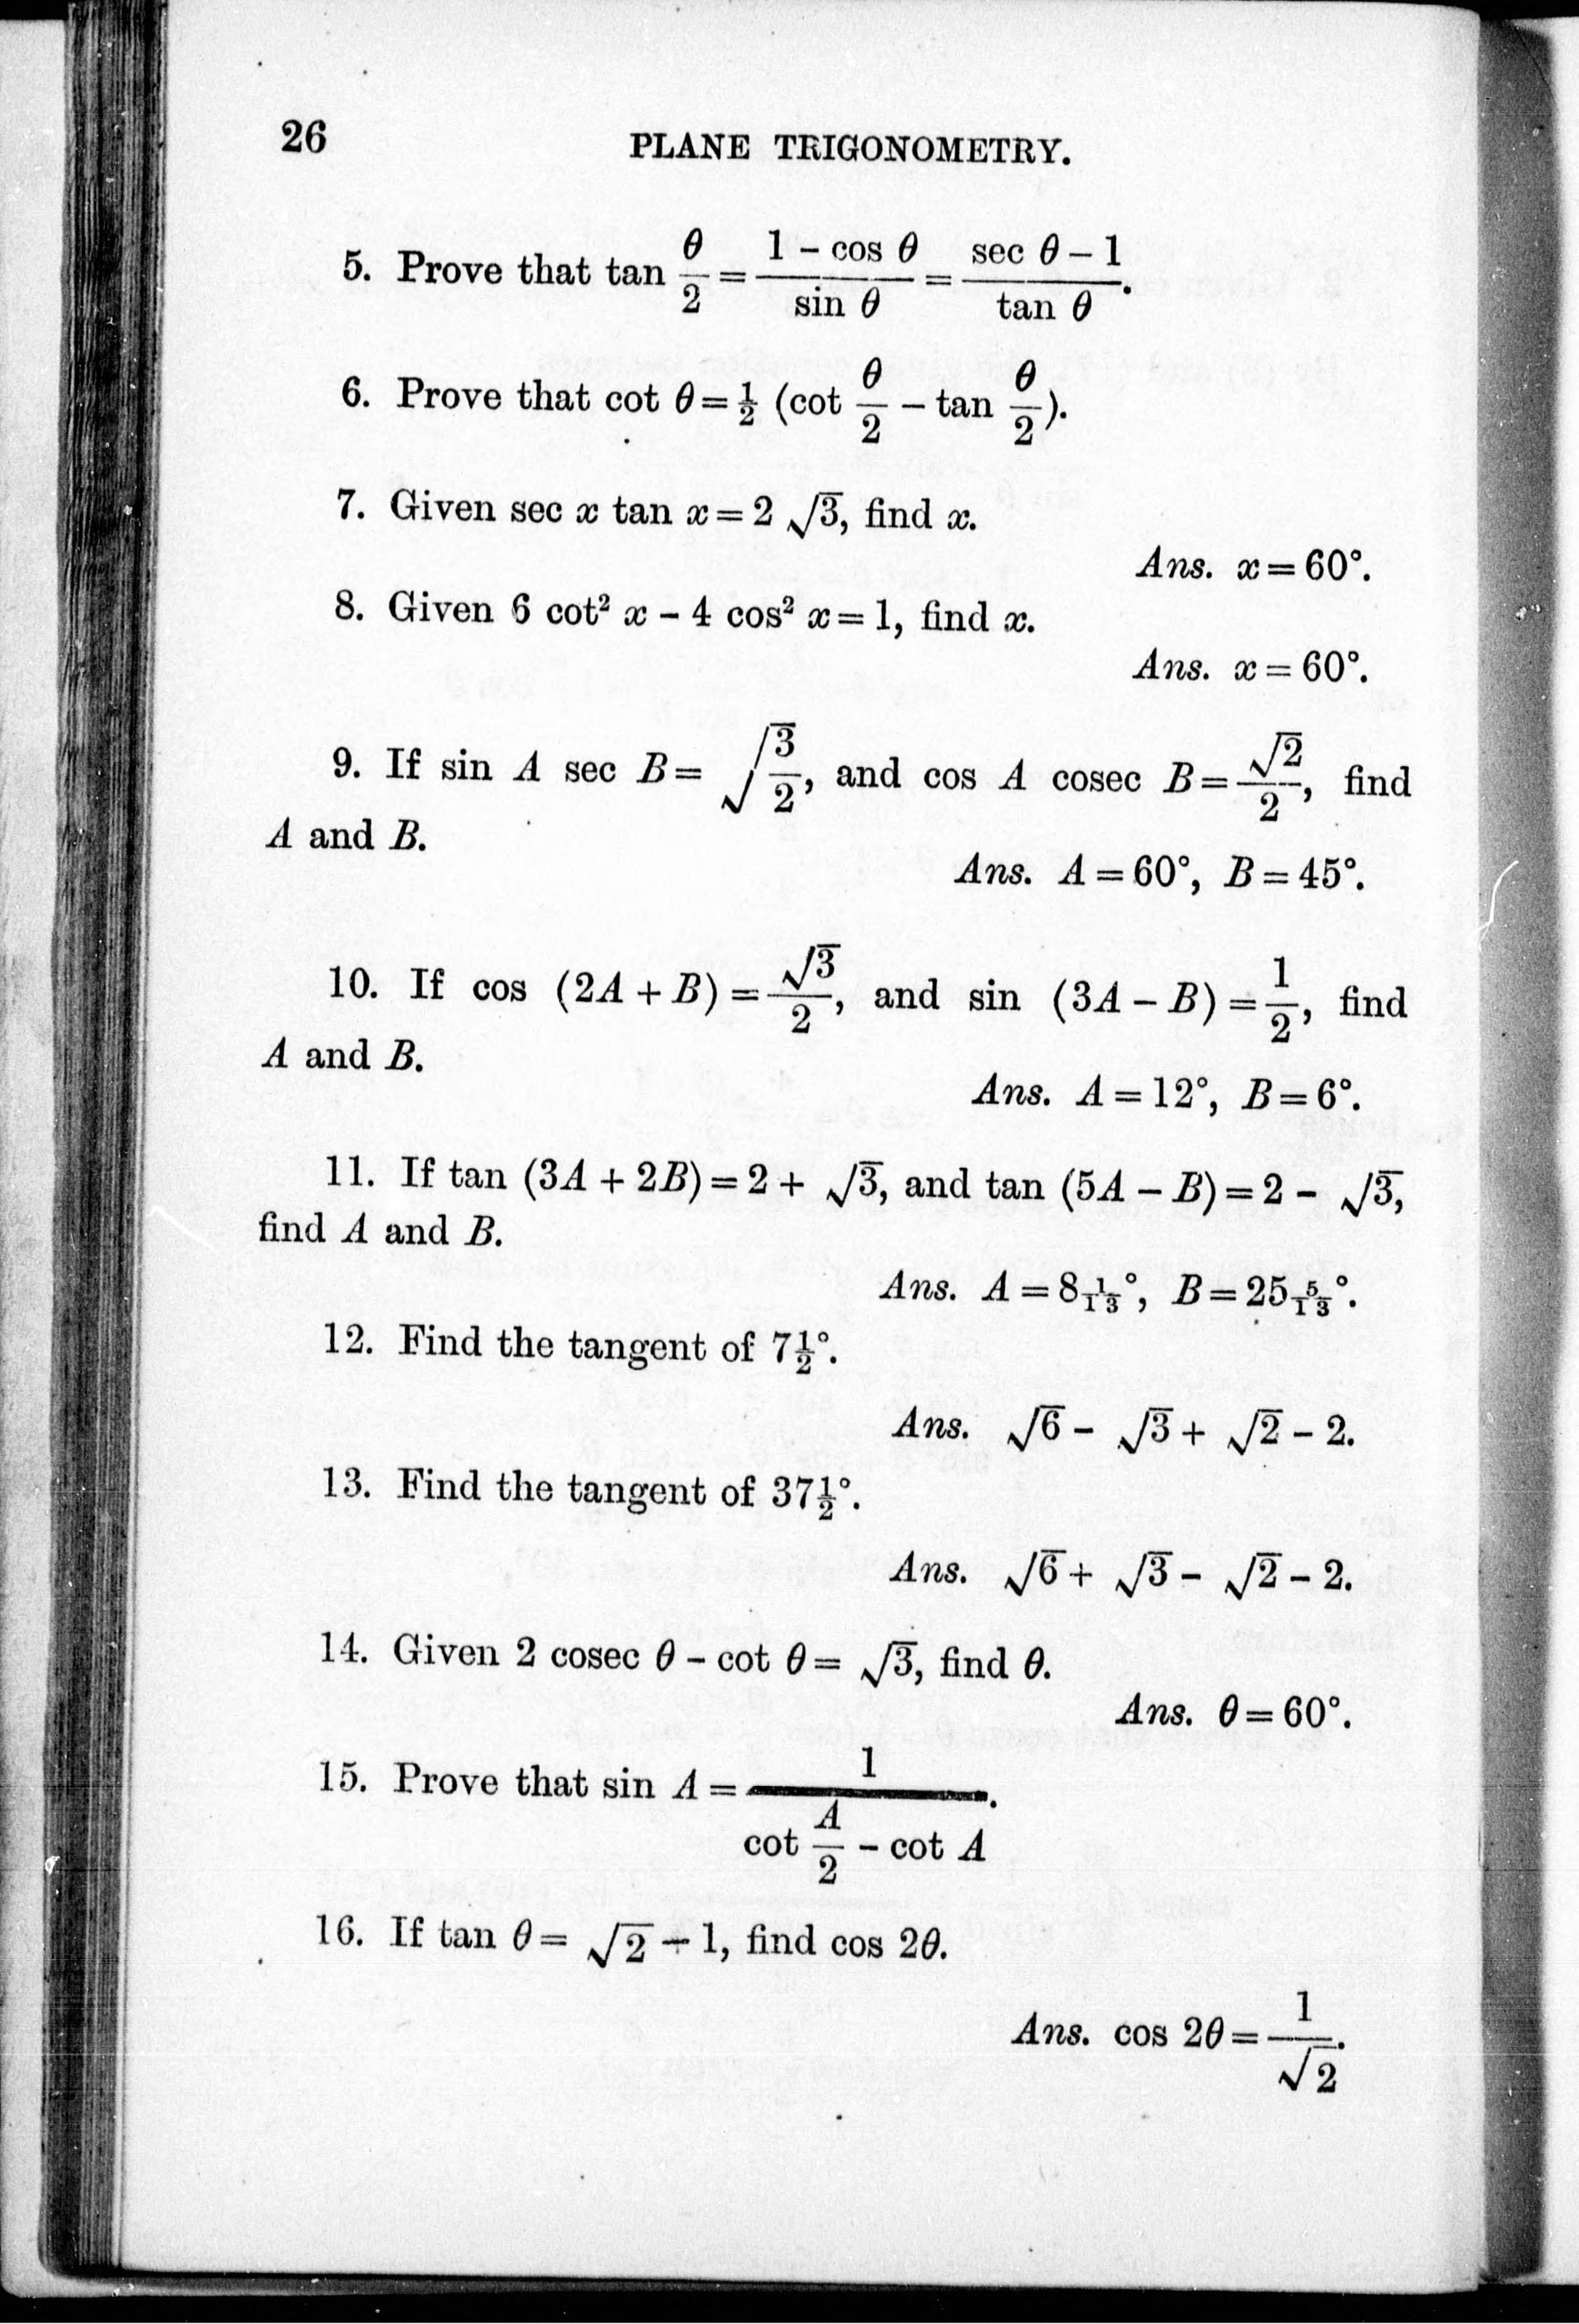 26
PLANE TRIGONOMETRY.
5. Prove that tan θ/2 = (1 − cos θ)/(sin θ) = (sec θ − 1)/(tan θ).
6. Prove that cot θ = ½ (cot θ/2 − tan θ/2).
7. Given sec x tan x = 2 √3, find x.
Ans. x = 60°.
8. Given 6 cot² x − 4 cos² x = 1, find x.
Ans. x = 60°.
9. If sin A sec B = √(3/2), and cos A cosec B = √2/2, find
A and B.
Ans. A = 60°, B = 45°.
10. If cos (2A + B) = √3/2, and sin (3A − B) = 1/2, find
A and B.
Ans. A = 12°, B = 6°.
11. If tan (3A + 2B) = 2 + √3, and tan (5A − B) = 2 − √3,
find A and B.
Ans. A = 8 1/13°, B = 25 5/13°.
12. Find the tangent of 7½°.
Ans. √6 − √3 + √2 − 2.
13. Find the tangent of 37½°.
Ans. √6 + √3 − √2 − 2.
14. Given 2 cosec θ − cot θ = √3, find θ.
Ans. θ = 60°.
15. Prove that sin A = 1/(cot A/2 − cot A).
16. If tan θ = √2 − 1, find cos 2θ.
Ans. cos 2θ = 1/√2.